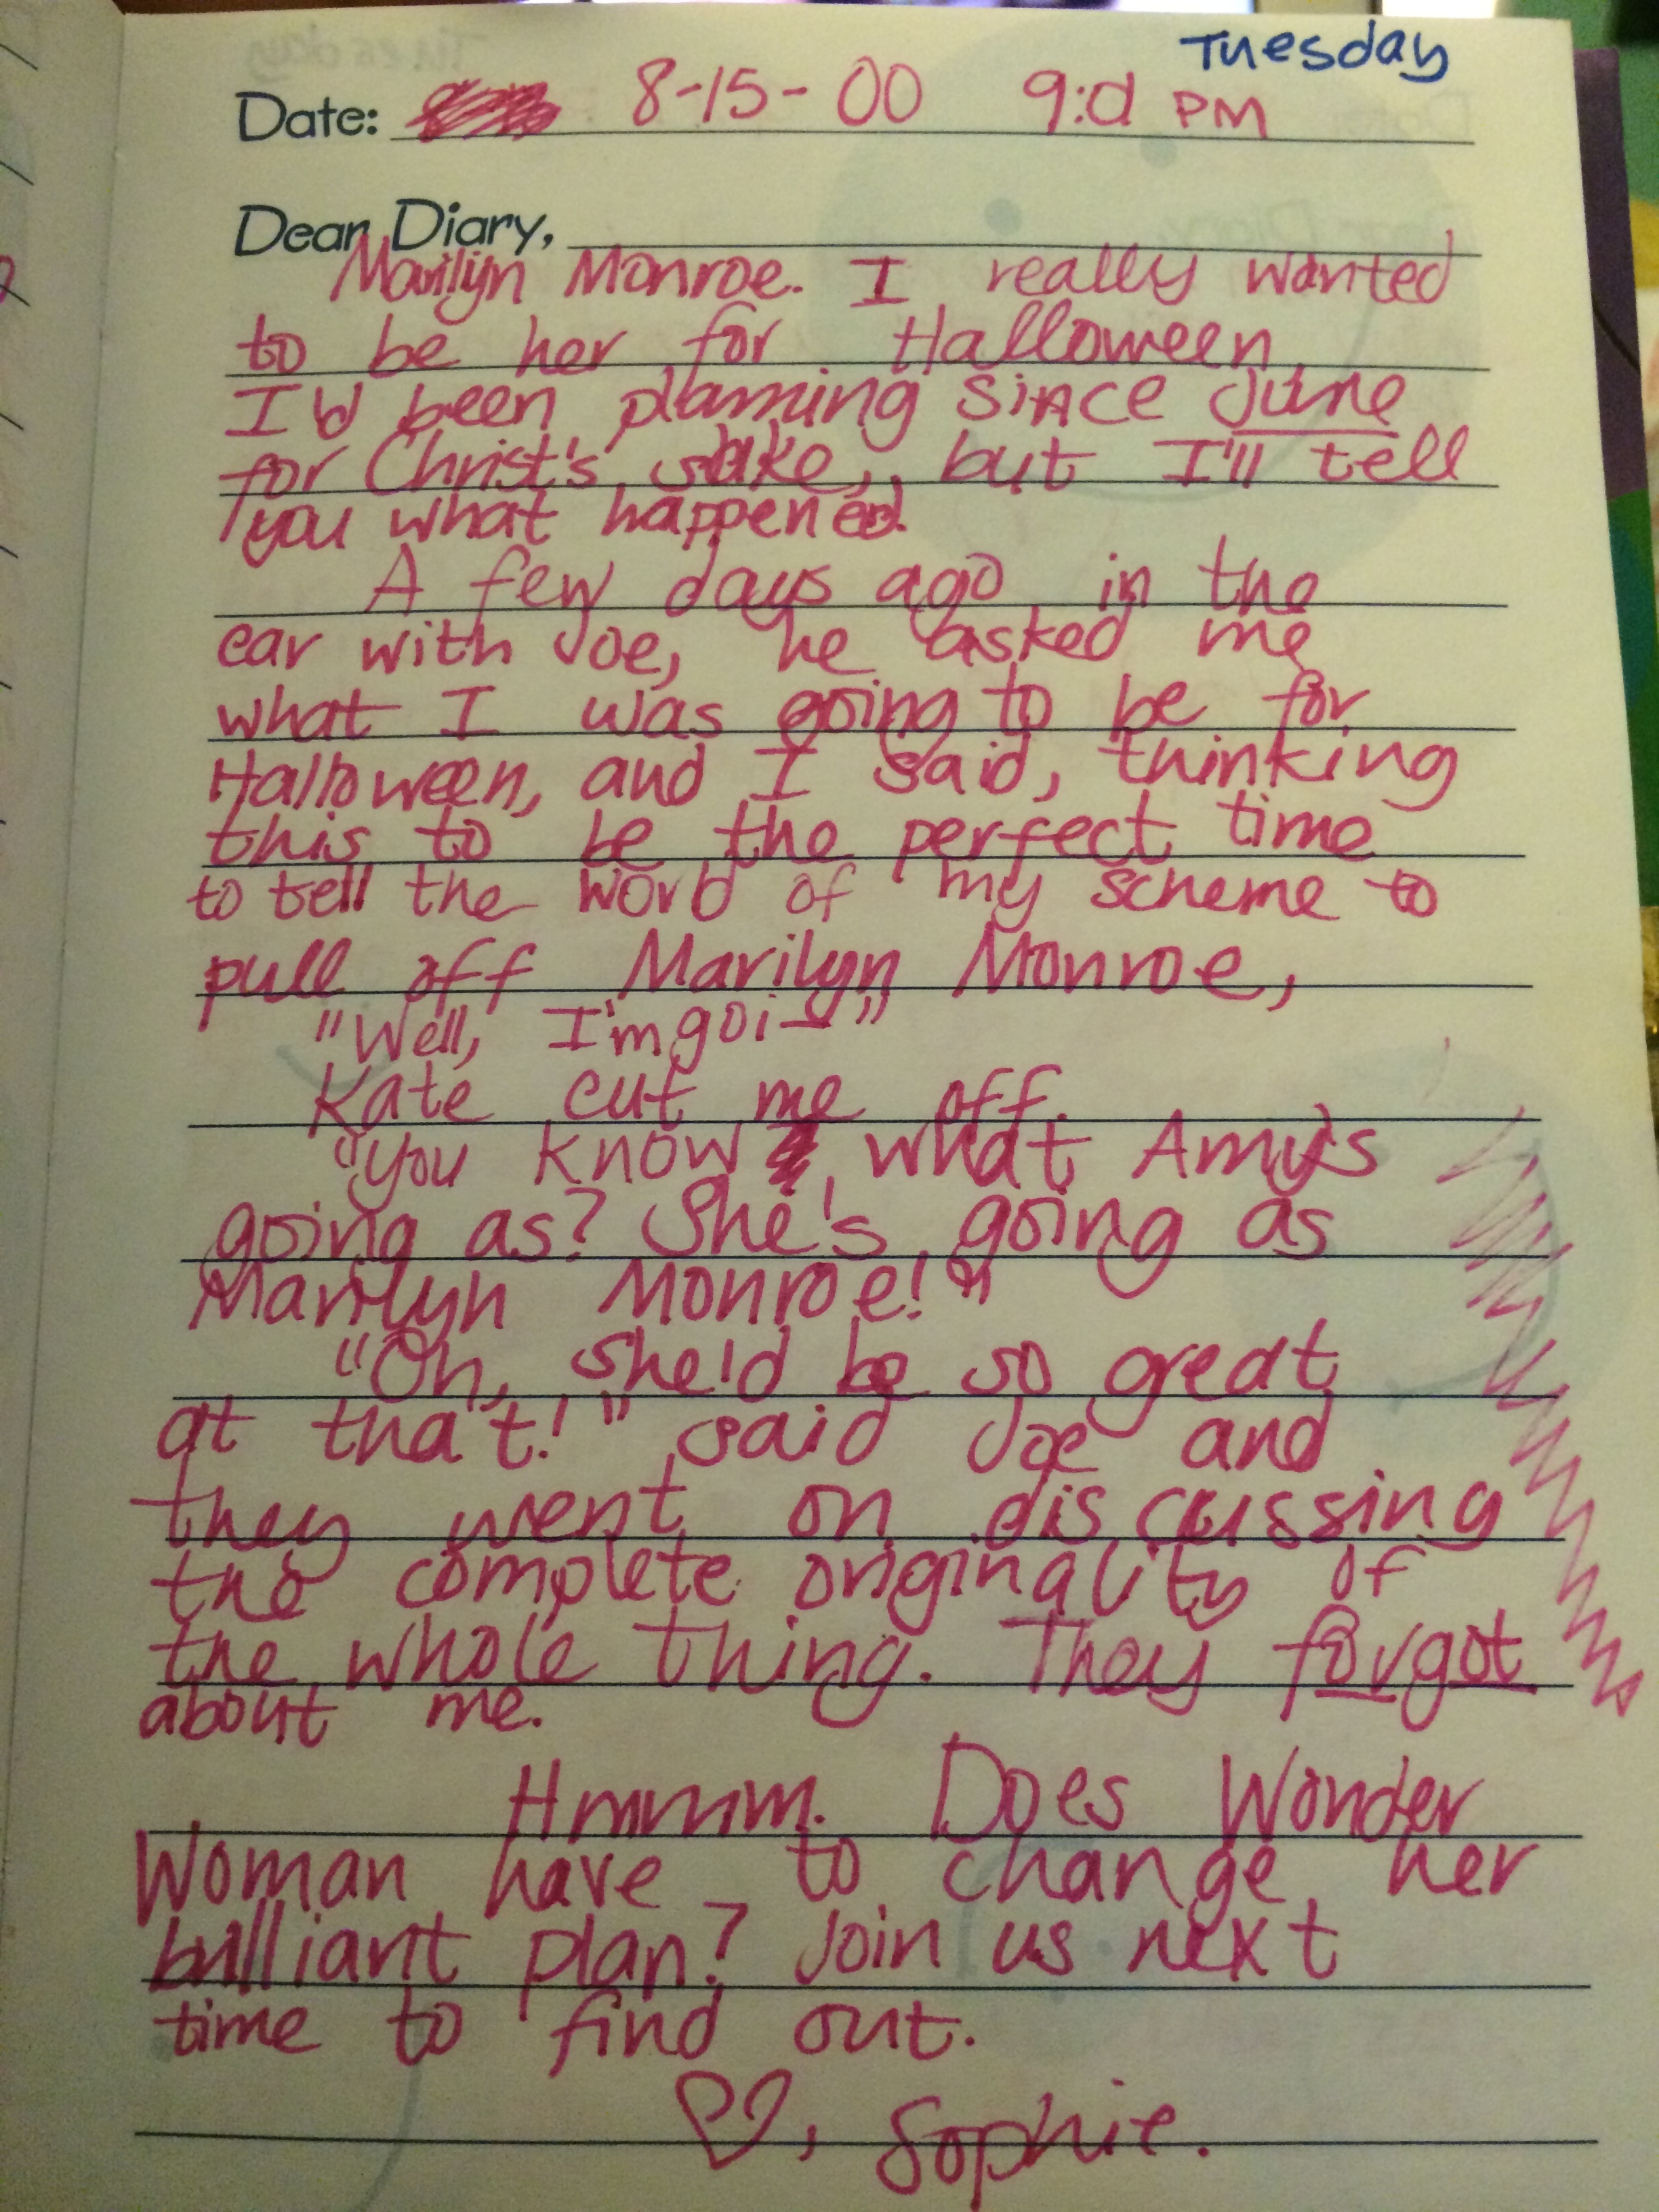 Tuesday
Date: 8-15-00 9:01 PM
Dear Diary,
Marilyn Monroe. I really wanted
to be her for Halloween.
I'd been planning since June
for Christ's sake, but I'll tell
you what happened.
A few days ago in the
car with Joe, he asked me
what I was going to be for
Halloween, and I said, thinking
this to be the perfect time
to tell the word of my scheme to
pull off Marilyn Monroe,
"Well, I'm goi—"
Kate cut me off.
"You know what Amy's
going as? She's going as
Marilyn Monroe!"
"Oh, she'd be so great
at that!" said Joe and
they went on discussing
the complete originality of
the whole thing. They forgot
about me.
Hmmm. Does Wonder
Woman have to change her
brilliant plan? Join us next
time to find out.
♡, Sophie.